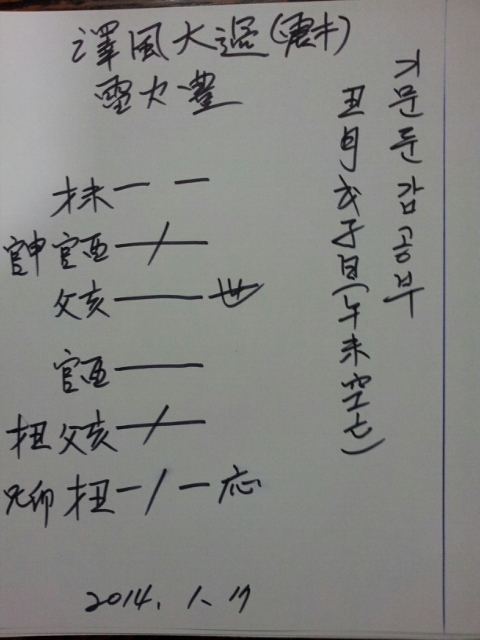 澤風大過(震木)
雷火豊
기문둔갑공부
丑月戊子日(午未空亡)
才未
官申 官酉
父亥 世
官酉
才丑 父亥
兄卯 才丑 応
2014. 1. 17